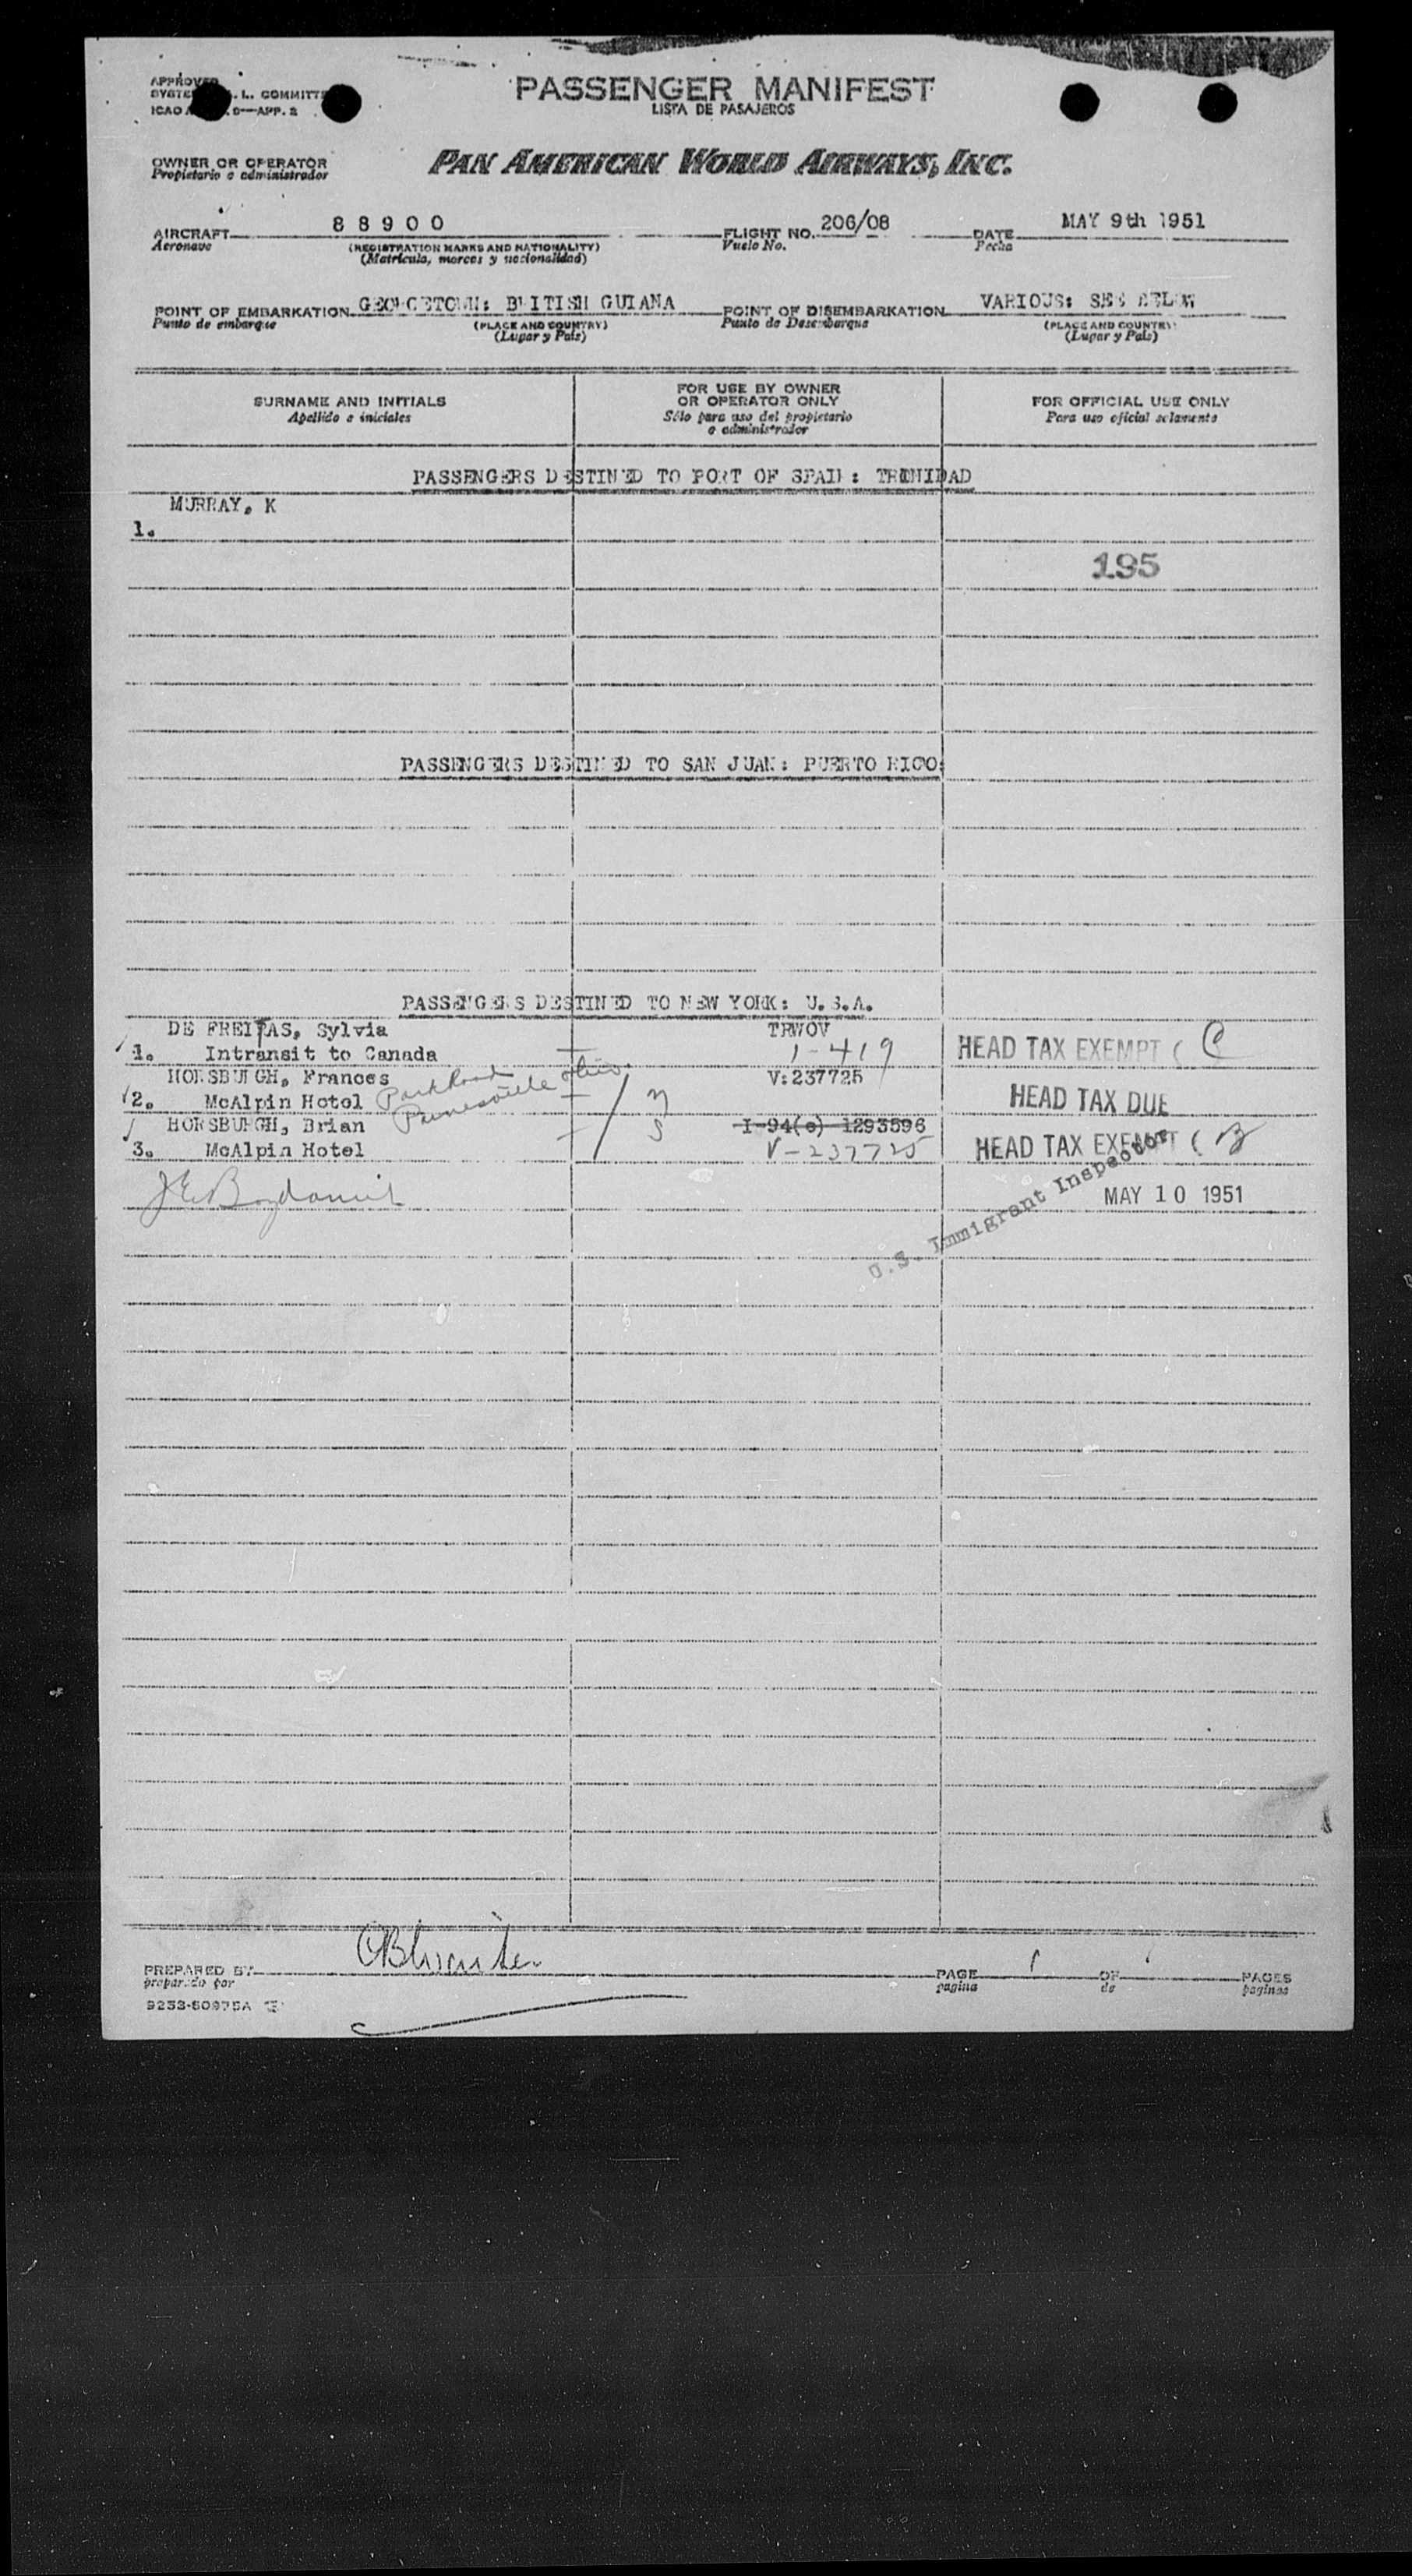 APPROVED
L. COMMITT
ICAO — APP. 2
PASSENGER MANIFEST
LISTA DE PASAJEROS
OWNER OR OPERATOR
Propietario o administrador
PAN AMERICAN WORLD AIRWAYS, INC.
AIRCRAFT 88900 FLIGHT NO. 206/08 DATE MAY 9th 1951
Aeronave (REGISTRATION MARKS AND NATIONALITY) Vuelo No. Fecha
(Matricula, marcas y nacionalidad)
POINT OF EMBARKATION GEORGETOWN: BRITISH GUIANA POINT OF DISEMBARKATION VARIOUS: SEE BELOW
Punto de embarque (PLACE AND COUNTRY) Punto de Desembarque (PLACE AND COUNTRY)
(Lugar y País) (Lugar y País)
SURNAME AND INITIALS FOR USE BY OWNER OR OPERATOR ONLY FOR OFFICIAL USE ONLY
Apellido e iniciales Sólo para uso del propietario o administrador Para uso oficial solamente
PASSENGERS DESTINED TO PORT OF SPAIN: TRINIDAD
MURRAY, K
1.
195
PASSENGERS DESTINED TO SAN JUAN: PUERTO RICO:
PASSENGERS DESTINED TO NEW YORK: U.S.A.
DE FREITAS, Sylvia TRWOV
1. Intransit to Canada 1-419 HEAD TAX EXEMPT ( C
HORSBURGH, Frances Park Road V:237725
2. McAlpin Hotel Painesville Ohio HEAD TAX DUE
HORSBURGH, Brian I-94(c) 1293596
3. McAlpin Hotel V-237725 HEAD TAX EXEMPT ( B
MAY 10 1951
U.S. Immigrant Inspector
PREPARED BY PAGE 1 OF 1 PAGES
preparado por pagina de paginas
9233-60975A